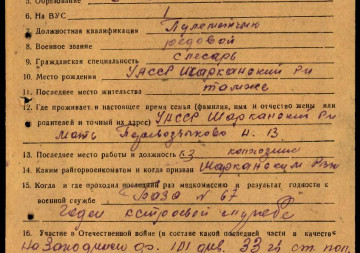 5. Образование
6. На ВУС 1
7. Должностная квалификация Пулеметчик
8. Военное звание рядовой
9. Гражданская специальность слесарь
10. Место рождения УАССР Шарканский Р-н
11. Последнее место жительства тамже
12. Где проживает в настоящее время семья (фамилия, имя и отчество жены или
родителей и точный адрес) УАССР Шарканский Р-н
Мать Перевозчикова Н. В
13. Последнее место работы и должность к-з колхозник
14. Каким райгорвоенкоматом и когда призван Шарканским Рвк
15. Когда и где проходил последний раз медкомиссию и результат годности к
военной службе База № 67
Годен к строевой службе
16. Участие в Отечественной войне (в составе какой последней части в качестве
На Западном фр. 101 див. 33 гв. ст. пол.